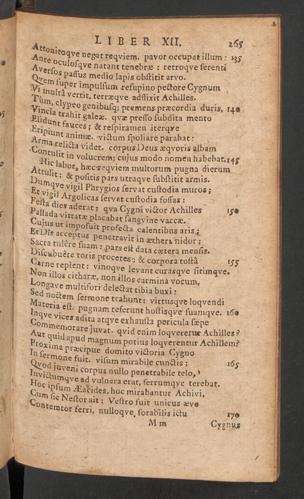 LIBER XII. 265
Attonitoque negat reqviem. pavor occupat illum: 135
Ante oculosque natant tenebræ: retroque ferenti
Aversos passus medio lapis obstitit arvo.
Quem super impulsum resupino pectore Cygnum
Vi multâ vertit, terræque adflixit Achilles.
Tum, clypeo genibusq; premens præcordia duris, 140
Vincla trahit galeæ. quæ presso subdita mento
Elidunt fauces; & respiramen iterque
Eripiunt animæ. victum spoliare parabat:
Arma relicta videt. corpus Deus æqvoris albam
Contulit in volucrem; cujus modo nomen habebat. 145
Hic labor, hæc reqviem multorum pugna dierum
Attulit: & positis pars utraque substitit armis.
Dumqve vigil Phrygios servat custodia muros;
Et vigil Argolicas servat custodia fossas:
Festa dies aderat: qva Cygni victor Achilles 150
Pallada vittatæ placabat sangvine vaccæ.
Cujus ut imposuit prosecta calentibus aris;
Et Dîs acceptus penetravit in æthera nidor;
Sacra tulêre suam: pars est data cætera mensis.
Discubuêre toris proceres: & corpora tostâ 155
Carne replent: vinoqve levant curasqve sitimqve.
Non illos citharæ, non illos carmina vocum,
Longave multifori delectat tibia buxi:
Sed noctem sermone trahunt: virtusqve loqvendi
Materia est. pugnam referunt hostisqve suamqve. 160
Inqve vices adita atqve exhausta pericula sæpe
Commemorare juvat. qvid enim loqveretur Achilles?
Aut qvid apud magnum potius loqverentur Achillem?
Proxima præcipue domito victoria Cygno
In sermone fuit. visum mirabile cunctis: 165
Qvod juveni corpus nullo penetrabile telo,
Invictumqve ad vulnera erat, ferrumqve terebat.
Hoc ipsum Æacides, hoc mirabantur Achivi,
Cum sic Nestor ait: Vestro fuit unicus ævo
Contemtor ferri, nulloqve forabilis ictu 170
M m Cygnus